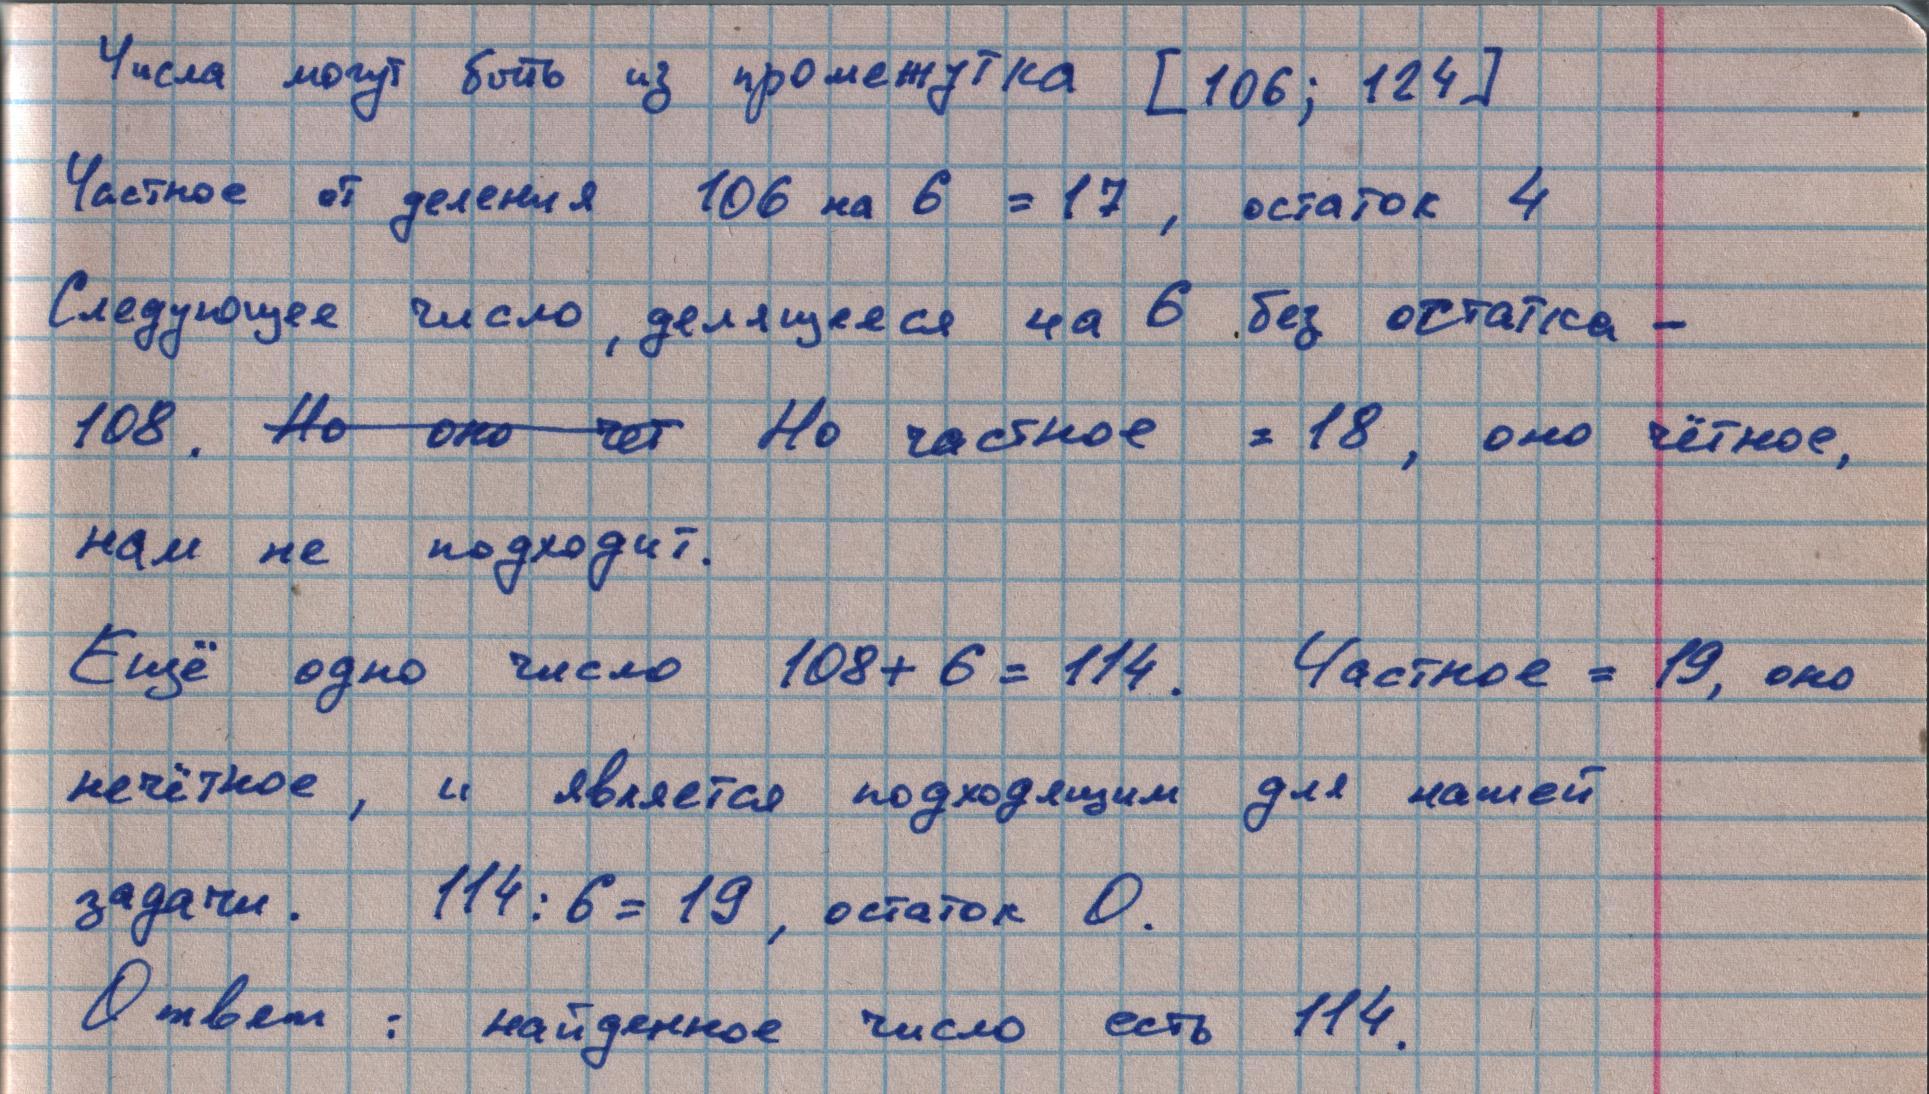 Числа могут быть из промежутка [106; 124]
Частное от деления 106 на 6 = 17, остаток 4
Следующее число, делящееся на 6 без остатка –
108. Но оно чет Но частное = 18, оно чётное,
нам не подходит.
Ещё одно число 108 + 6 = 114. Частное = 19, оно
нечётное, и является подходящим для нашей
задачи. 114 : 6 = 19, остаток 0.
Ответ : найденное число есть 114.